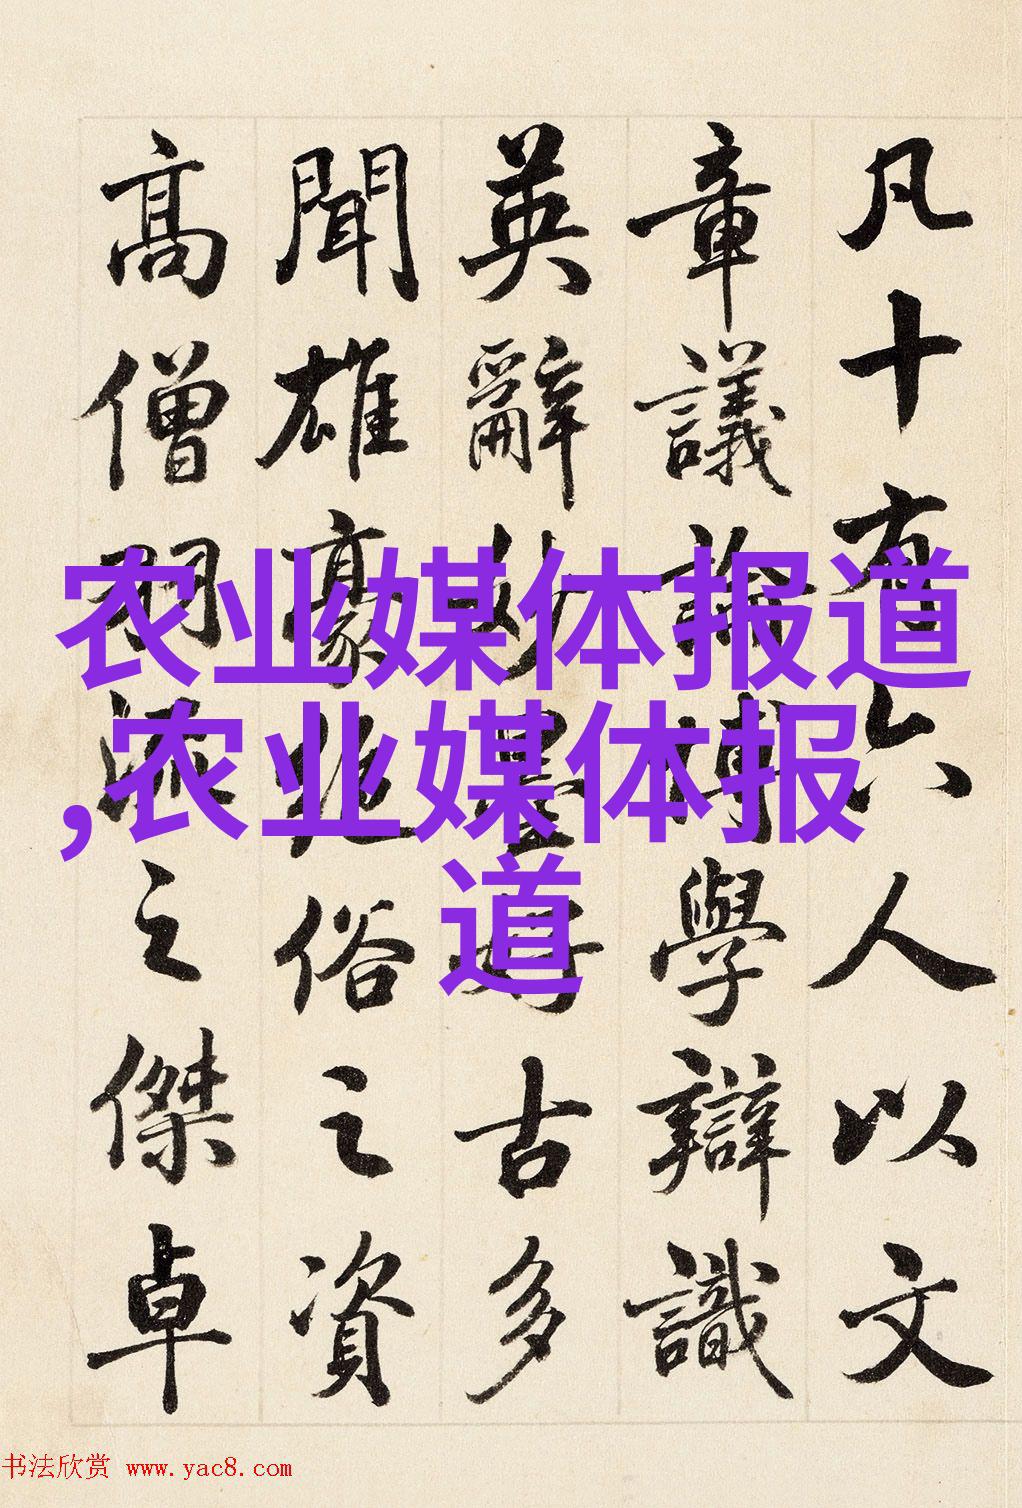 凡十有六人以文
章議論博學辯識
英辭妙墨好古多
聞雄豪絕俗之資
高僧羽流之傑卓
农业媒体报道
,农业媒体报
道
书法欣赏 www.yac8.com